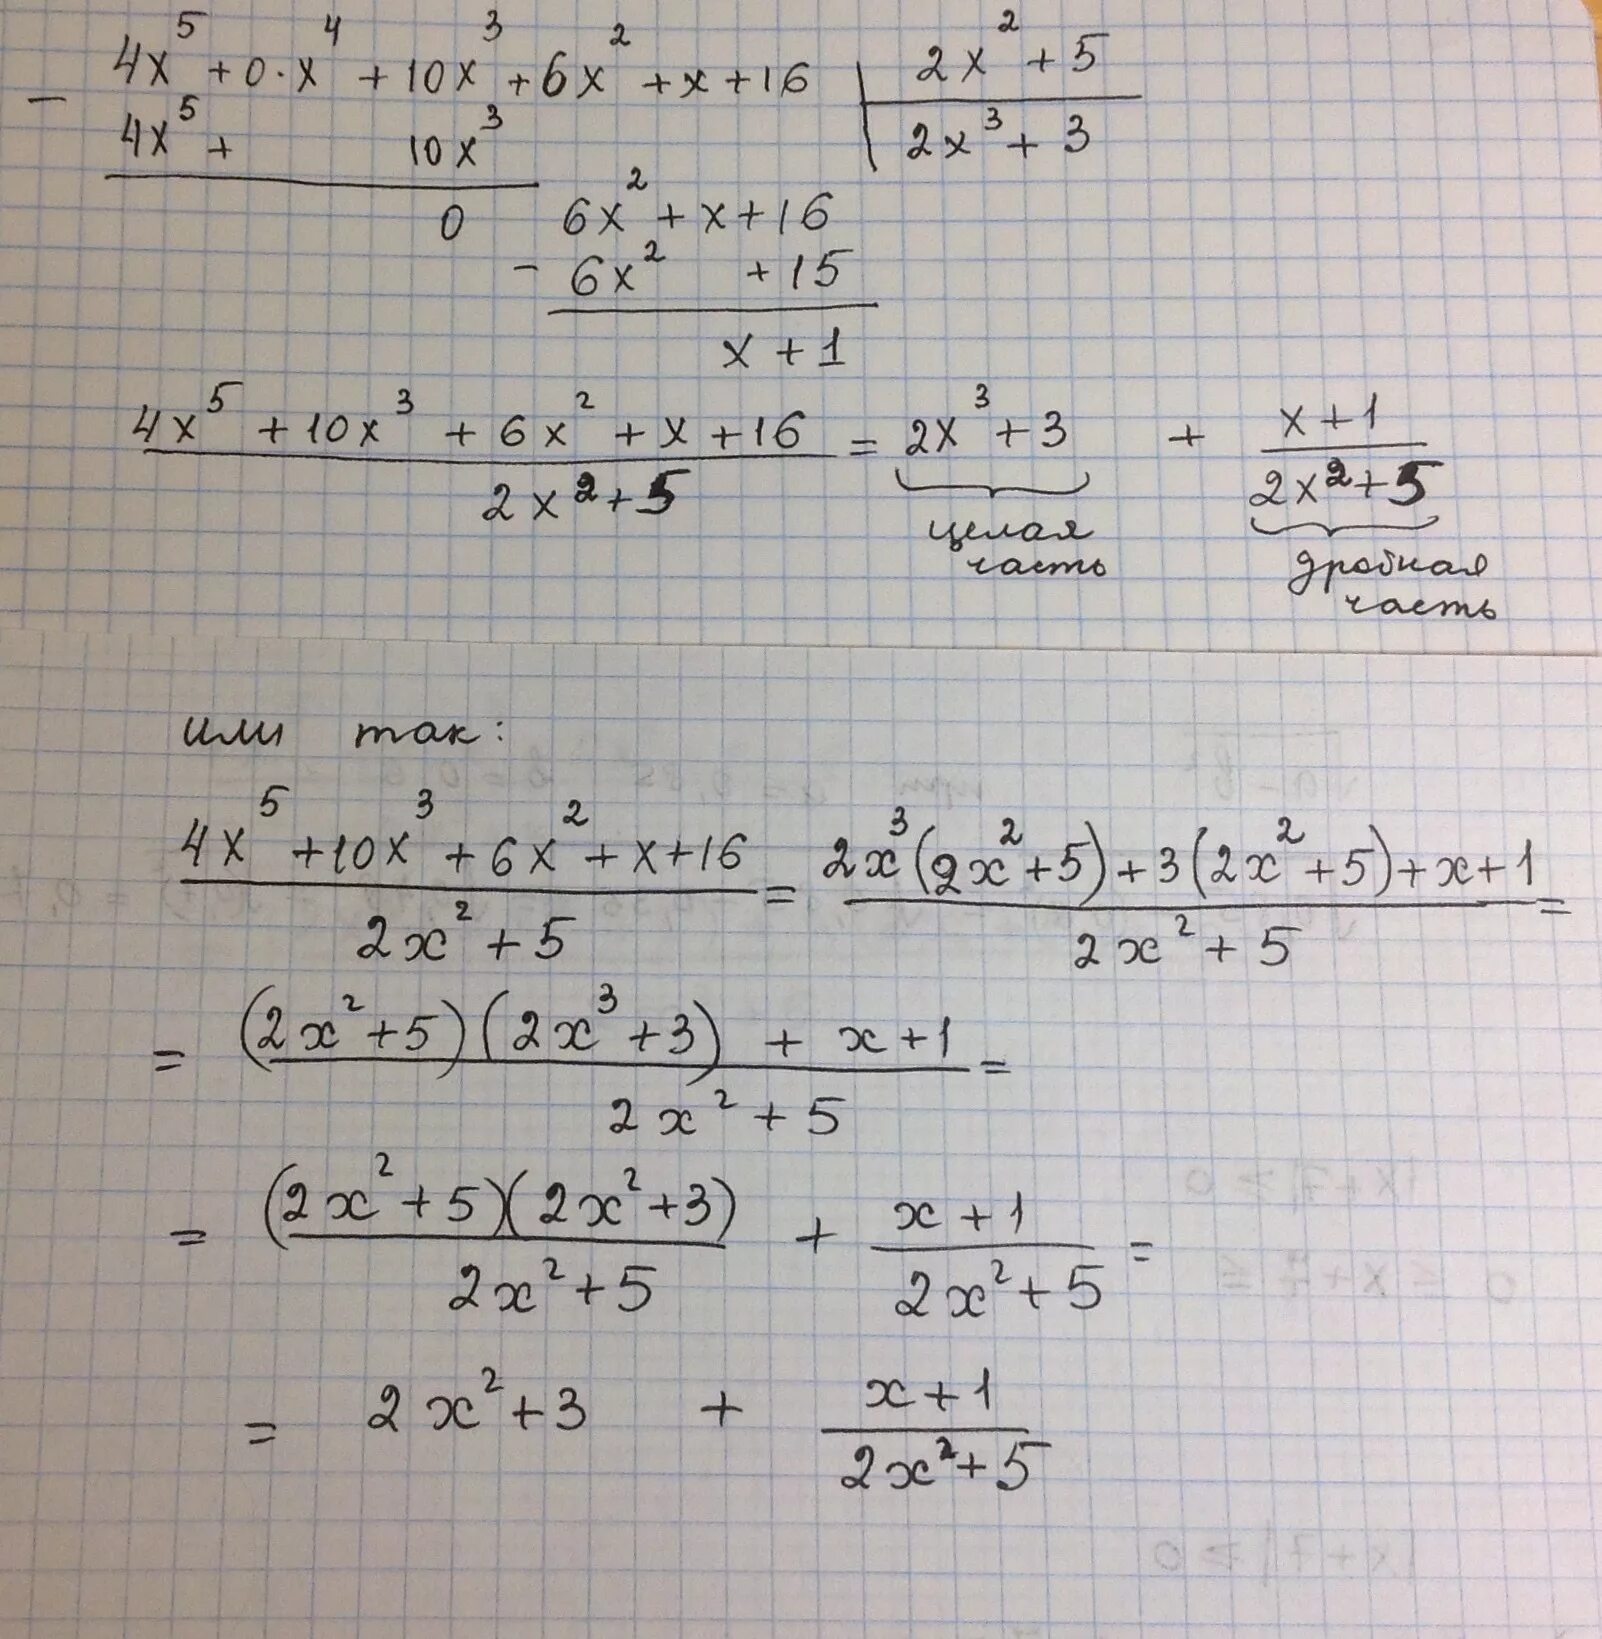 4x⁵ + 0·x⁴ + 10x³ + 6x² + x + 16 | 2x² + 5
− 4x⁵ + 10x³ | 2x³ + 3
0 6x² + x + 16
− 6x² + 15
x + 1
(4x⁵ + 10x³ + 6x² + x + 16)/(2x² + 5) = 2x³ + 3 + (x + 1)/(2x² + 5)
целая часть дробная часть
или так:
(4x⁵ + 10x³ + 6x² + x + 16)/(2x² + 5) = (2x³(2x² + 5) + 3(2x² + 5) + x + 1)/(2x² + 5) =
= ((2x² + 5)(2x³ + 3) + x + 1)/(2x² + 5) =
= ((2x² + 5)(2x² + 3))/(2x² + 5) + (x + 1)/(2x² + 5) =
= 2x² + 3 + (x + 1)/(2x² + 5)